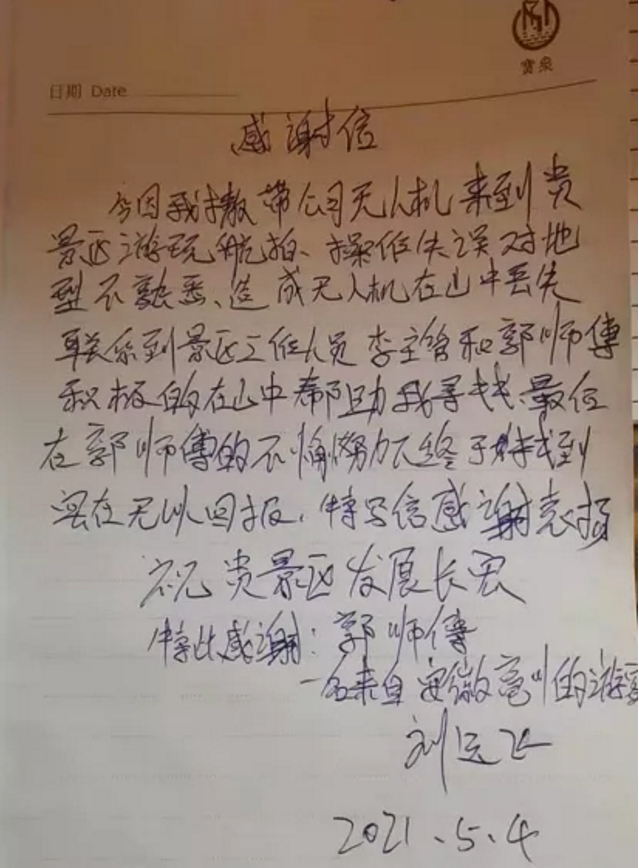 雲泉
日期 Date
感谢信
今因我携带公司无人机来到贵
景区游玩航拍、操作失误对地
型不熟悉、造成无人机在山中丢失
联系到景区工作人员李主管和郭师傅
积极的在山中帮助我寻找、最后
在郭师傅的不懈努力下终于找到
实在无以回报，特写信感谢表扬
祝贵景区发展长宏
特此感谢：郭师傅
一名来自安徽亳州的游客
刘
2021.5.4